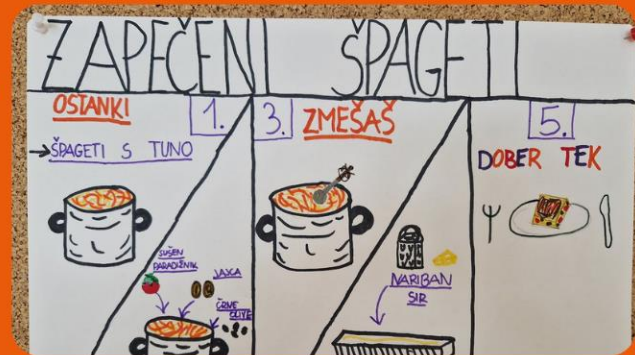 ZAPEČENI ŠPAGETI
OSTANKI
1.
→ŠPAGETI S TUNO
SUŠEN
PARADIŽNIK
JAJCA
ČRNE
OLIVE
3.
ZMEŠAŠ
NARIBAN
SIR
5.
DOBER TEK